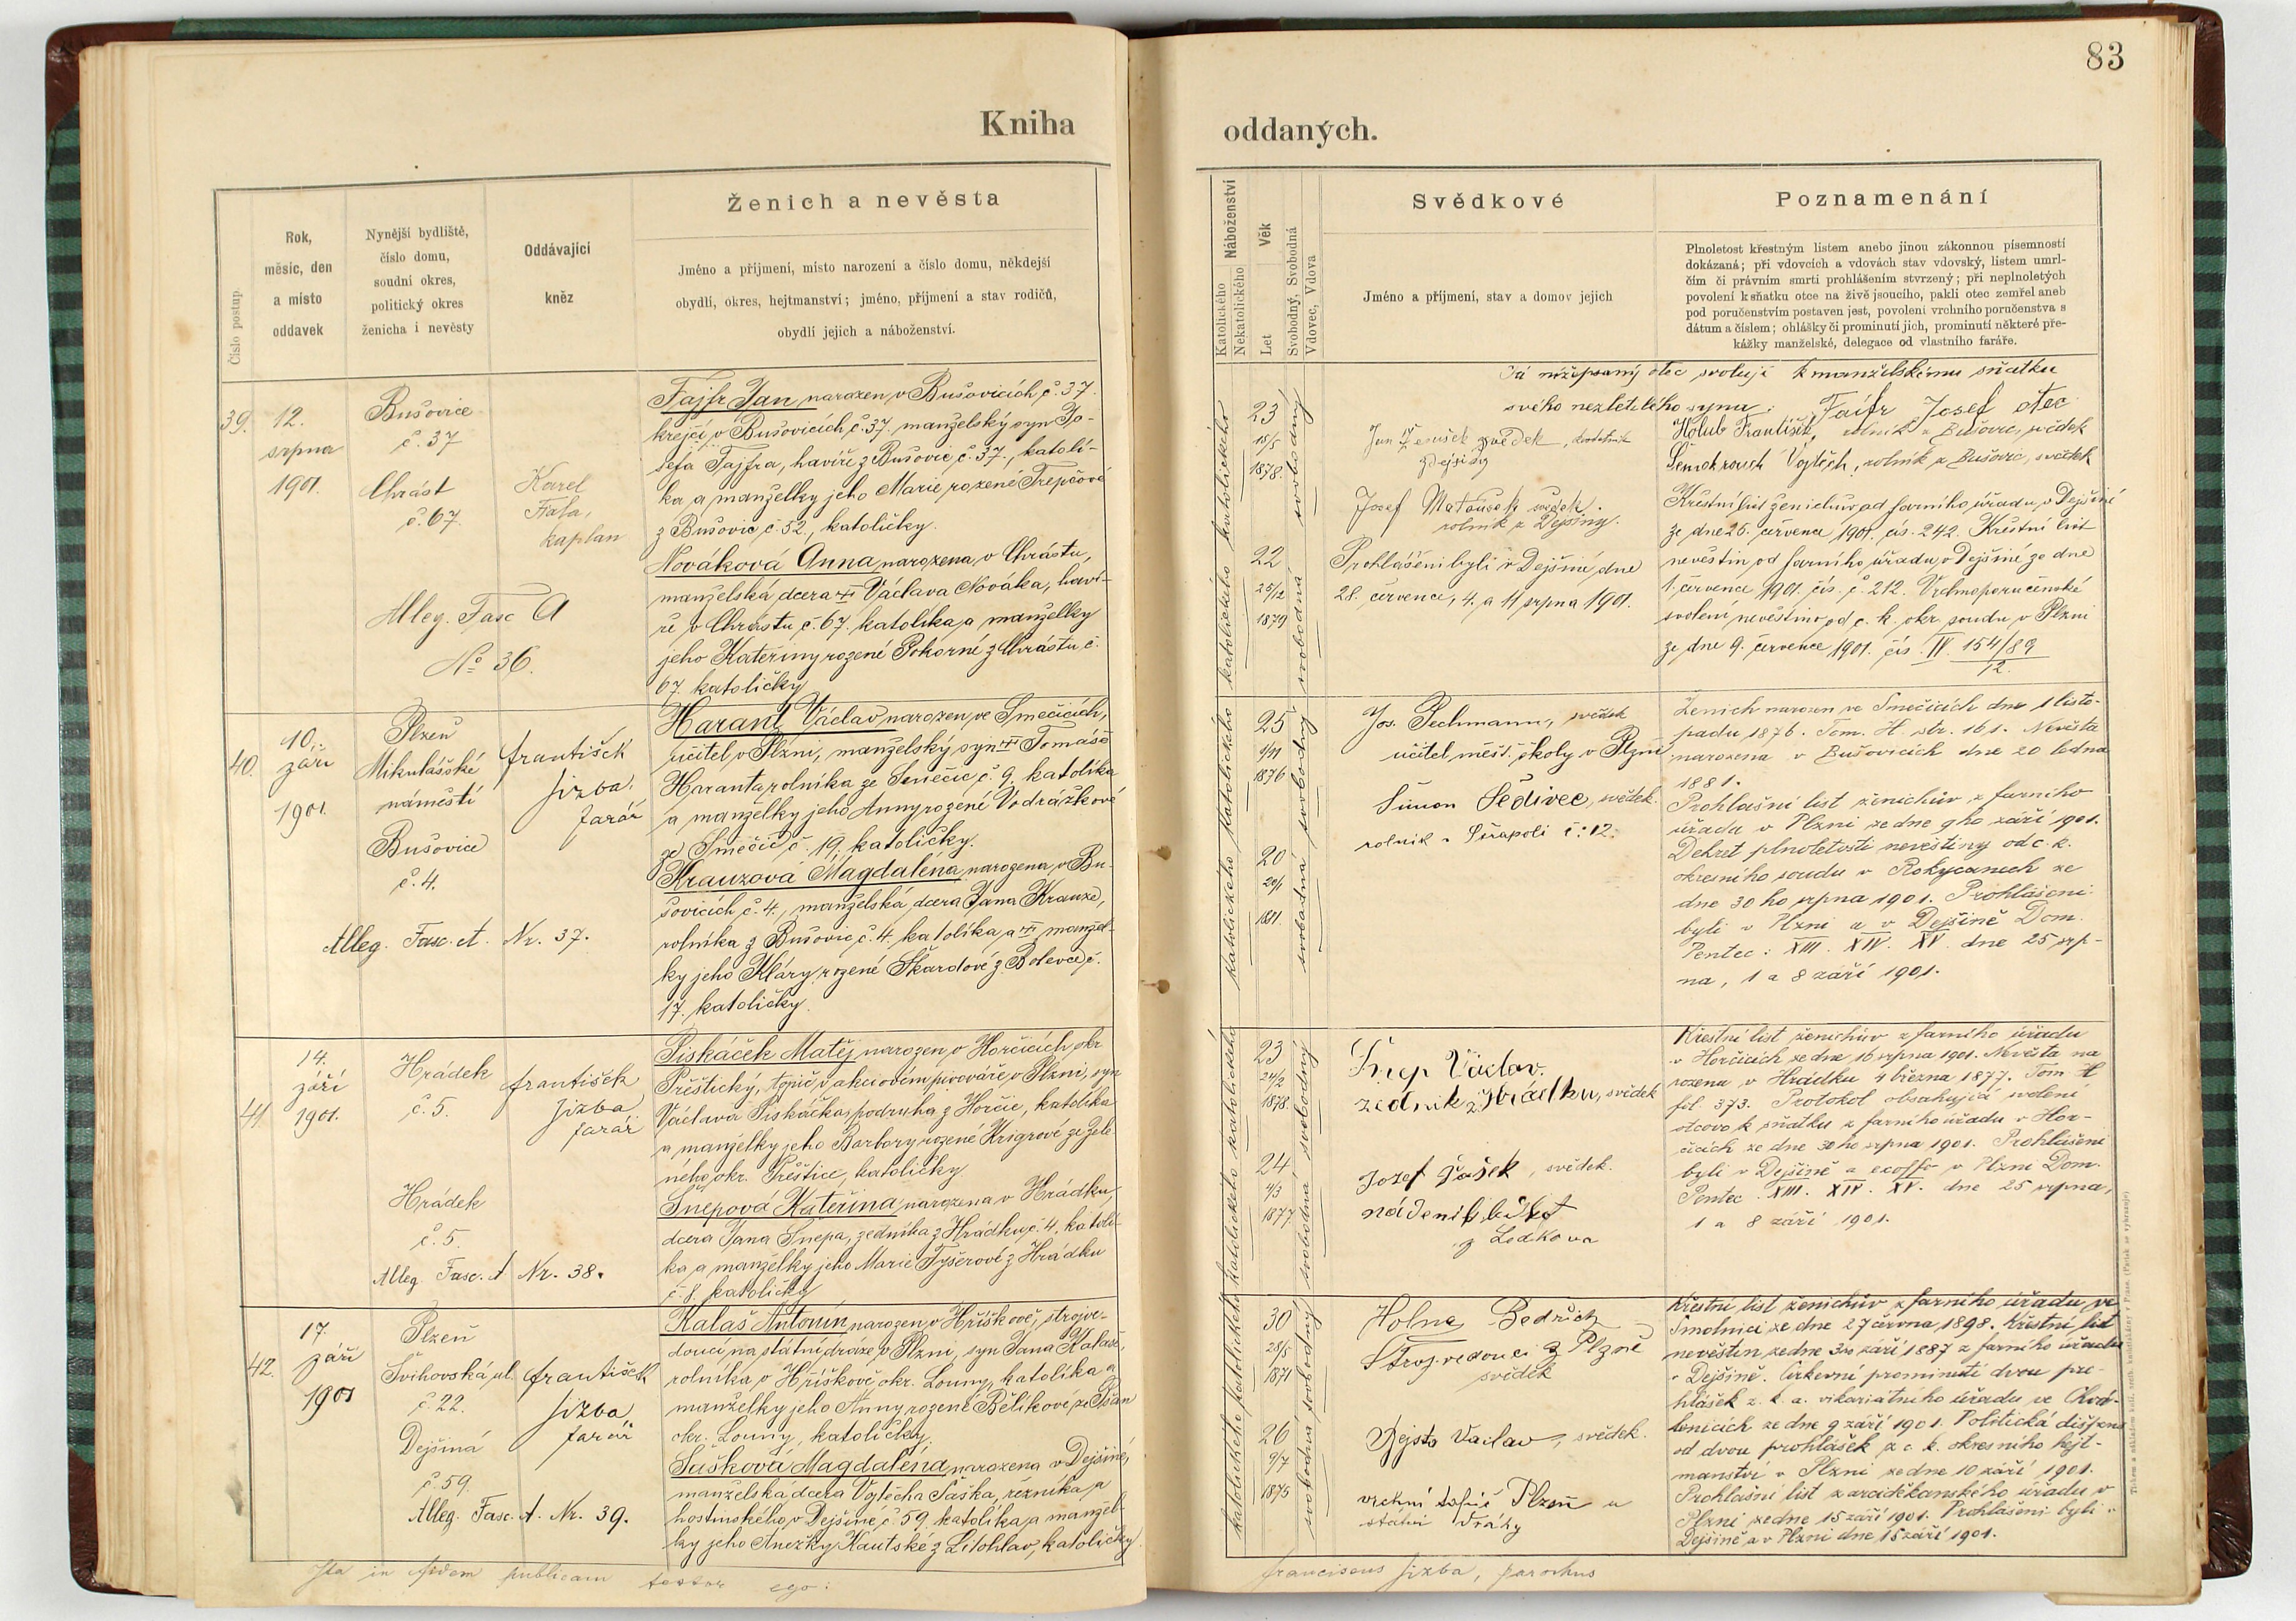 83
Kniha
oddaných.
Číslo postup.
Rok,
měsíc, den
a místo
oddavek
Nynější bydliště,
číslo domu,
soudní okres,
politický okres
ženicha i nevěsty
Oddávající
kněz
Ženich a nevěsta
Jméno a příjmení, místo narození a číslo domu, někdejší
obydlí, okres, hejtmanství; jméno, příjmení a stav rodičů,
obydlí jejich a náboženství.
39.
12.
srpna
1901.
Bušovice
č. 37
Chrást
č. 67.
Karel
Fiala,
kaplan
Alleg. Fasc A
No 36.
Fajfr Jan narozen v Bušovicích č. 37.
krejčí v Bušovicích č. 37. manželský syn Jo-
sefa Fajfra, havíře z Bušovic č. 37., katolí-
ka a manželky jeho Marie rozené Trepčové
z Bušovic č. 52., katoličky.
Nováková Anna narozena v Chrástu,
manželská dcera Václava Nováka, haví-
ře v Chrástu č. 67. katolíka a manželky
jeho Kateřiny rozené Pokorné z Chrástu č.
67. katoličky
40.
10.
září
1901.
Plzeň
Mikulášské
náměstí
Bušovice
č. 4.
František
Jizba,
farář
Alleg. Fasc. A. Nr. 37.
Harant Václav narozen ve Smečicích,
učitel v Plzni, manželský syn Tomáše
Haranta, rolníka ze Smečic č. 9. katolíka
a manželky jeho Anny rozené Vodrážkové
ze Smečic č. 19. katoličky.
Krauzová Magdaléna narozena v Bu-
šovicích č. 4., manželská dcera Jana Krauze,
rolníka z Bušovic č. 4. katolíka, a manžel-
ky jeho Kláry rozené Škardové z Bolevce č.
17. katoličky.
41.
14.
září
1901.
Hrádek
č. 5.
Hrádek
č. 5.
František
Jizba
farář
Alleg. Fasc. A Nr. 38.
Piskáček Matěj narozen v Horčicích okr.
Přeštický, topič v akciovém pivováře v Plzni, syn
Václava Piskáčka, podruha z Horčic, katolíka
a manželky jeho Barbory rozené Krigrové ze Zele-
ného, okr. Přeštice, katoličky.
Šnepová Kateřina narozena v Hrádku,
dcera Jana Šnepa, zedníka z Hrádku č. 4. katolí-
ka, a manželky jeho Marie Tyšerové z Hrádku
č. 8. katoličky
42.
17.
září
1901
Plzeň
Švihovská ul.
č. 22.
Dejšiná
č. 59.
František
Jizba
farář
Alleg. Fasc. A. Nr. 39.
Kalaš Antonín narozen v Hříškově, strojve-
doucí na státní dráze v Plzni, syn Jana Kalaše,
rolníka v Hříškově okr. Louny, katolíka a
manželky jeho Anny rozené Bělíkové ze Pšan
okr. Louny, katoličky.
Šašková Magdaléna narozena v Dejšiné,
manželská dcera Vojtěcha Šaška, řezníka, a
hostinského v Dejšiné č. 59. katolíka, a manžel-
ky jeho Anežky Kautské z Litohlav, katoličky.
Ita in fidem publicam testor ego:
Náboženství
Katolického
Nekatolického
Věk
Let
Svobodný, Svobodná
Vdovec, Vdova
Svědkové
Jméno a příjmení, stav a domov jejich
Poznamenání
Plnoletost křestným listem anebo jinou zákonnou písemností
dokázaná; při vdovcích a vdovách stav vdovský, listem úmrl-
čím či právním smrti prohlášením stvrzený; při neplnoletých
povolení k sňatku otce na živě jsoucího, pakli otec zemřel aneb
pod poručenstvím postaven jest, povolení vrchního poručenstva s
dátum a číslem; ohlášky či prominutí jich, prominutí některé pře-
kážky manželské, delegace od vlastního faráře.
katolického katolického
23
18/5
1878.
svobodný
22
25/2
1879
svobodná
Já nížepsaný otec svoluji k manželskému sňatku
svého nezletilého syna: Faifr Josef otec
Jan svědek,
z Dejšiny
Josef Matoušek svědek.
rolník z Dejšiny.
Prohlášeni byli v Dejšiné dne
28. července, 4. a 11 srpna 1901.
Holub František, rolník z Bušovic, svědek
Vojtěch, rolník z Bušovic, svědek
Křestní list ženichův od farního úřadu v Dejšiné
ze dne 26. července 1901. čís. 242. Křestní list
nevěstin od farního úřadu v Dejšiné ze dne
1. července 1901. čís. č. 212. Vrchnoporučenské
svolení nevěstino od c. k. okr. soudu v Plzni
ze dne 9. července 1901. čís. IV. 154/89
12.
katolického katolického
25
1/11
1876
svobodný
20
20/1
1881.
svobodná
Jos. Pechmann, svědek
učitel měšť. školy v Plzni
Šimon Šedivec, svědek.
rolník č: 12.
Ženich narozen ve Smečicích dne 1 listo-
padu 1876. Tom. H. str. 161. Nevěsta
narozena v Bušovicích dne 20 ledna
1881.
Prohlašní list ženichův z farního
úřadu v Plzni ze dne 9ho září 1901.
Dekret plnoletosti nevěstiny od c. k.
okresního soudu v Rokycanech ze
dne 30 ho srpna 1901. Prohlášeni
byli v Plzni a v Dejšině Dom.
Pentec: XIII. XIV. XV. dne 25 srp-
na, 1 a 8 září 1901.
katolického katolického
23
24/2
1878.
svobodný
24
4/3
1877
svobodná
Šnep Václav.
zedník z Hrádku, svědek
Jozef Pašek, svědek.
z Ledkova
Křestní list ženichův z farního úřadu
v Horčicích ze dne 16 srpna 1901. Nevěsta na
rozena v Hrádku 4 března 1877. Tom
fol. 373. Protokol obsahující svolení
otcovo k sňatku z farního úřadu v Hor-
čicích ze dne 30 ho srpna 1901. Prohlášeni
byli v Dejšině a v Plzni Dom.
Pentec. XIII. XIV. XV. dne 25 srpna,
1 a 8 září 1901.
katolického katolického
30
28/5
1871
svobodný
26
9/7
1875
svobodná
Holna Bedřich
Strojvedoucí z Plzně
svědek
Václav, svědek.
vrchní topič Plzeň
státní dráhy
Křestní list ženichův z farního úřadu ve
Smolnici ze dne 27 června 1898. Křestní list
nevěstin ze dne 3ho září 1887 z farního úřadu
v Dejšině. Církevní prominutí dvou pro-
hlášek z. k. a. vikariatního úřadu ve Chrá-
stenicích ze dne 9 září 1901. Politická dispens
od dvou prohlášek z c. k. okresního hejt-
manství v Plzni ze dne 10 září 1901.
Prohlašní list z arciděkanského úřadu v
Plzni ze dne 15 září 1901. Prohlášeni byli v
Dejšině a v Plzni dne 15 září 1901.
Franciscus Jizba, parochus